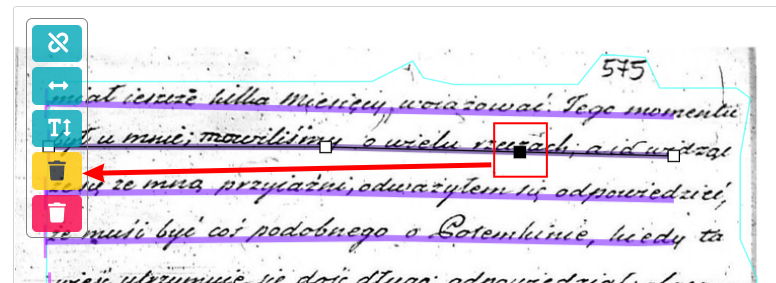 575
miał jeszcze kilka miesięcy, uważować. Tego momentu
był u mnie; mówiliśmy o wielu rzeczach; a id widząc
że mną przyjaźni, odważyłem się odpowiedzieć,
że musi być coś podobnego o Potemkinie, kiedy ta
się dość długo; odpowiedział
T